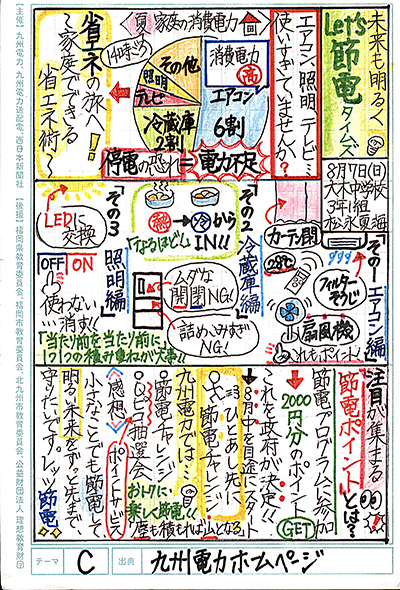 未来も明るく
Let's
節電
タイムズ
8月7日(日)
大木中学校
3年1組
松永夏海
エアコン、照明、テレビ…
使いすぎていませんか?
夏 家庭の消費電力
14時ごろ
消費電力
高
エアコン
6割
冷蔵庫
2割
テレビ
照明
その他
停電の恐れ=電力不足
省エネの旅へ!
〜家庭でできる
省エネ術〜
『その1 エアコン編』
カーテン閉
28℃
フィルターそうじ
扇風機
これもポイント
『その2 冷蔵庫編』
熱→冷から
IN!!
「なるほど」
ムダな
開閉NG!
詰めこみすぎ
NG!
『その3 照明編』
LEDに
交換
OFF ON
使わない
消す!!
「当たり前を当たり前に」
1つ1つの積み重ねが大事!
注目が集まる
節電ポイントとは?
節電プログラムに参加
2000円分のポイント
GET
これを政府が決定!!
8月中を目途にスタート
ひとあし先に
節電チャレンジ
九州電力では…
○節電チャレンジ
○QUOカード抽選会
ポイントサービス
おトクに
楽しく節電!!
塵も積もれば山となる
〈感想〉
小さなことでも節電して、
明るい未来をずっと先まで
守りたいです。レッツ節電
テーマ C
出典 九州電力ホームページ
【主催】九州電力、九州電力送配電、西日本新聞社 【後援】福岡県教育委員会、福岡市教育委員会、北九州市教育委員会、公益財団法人 理想教育財団